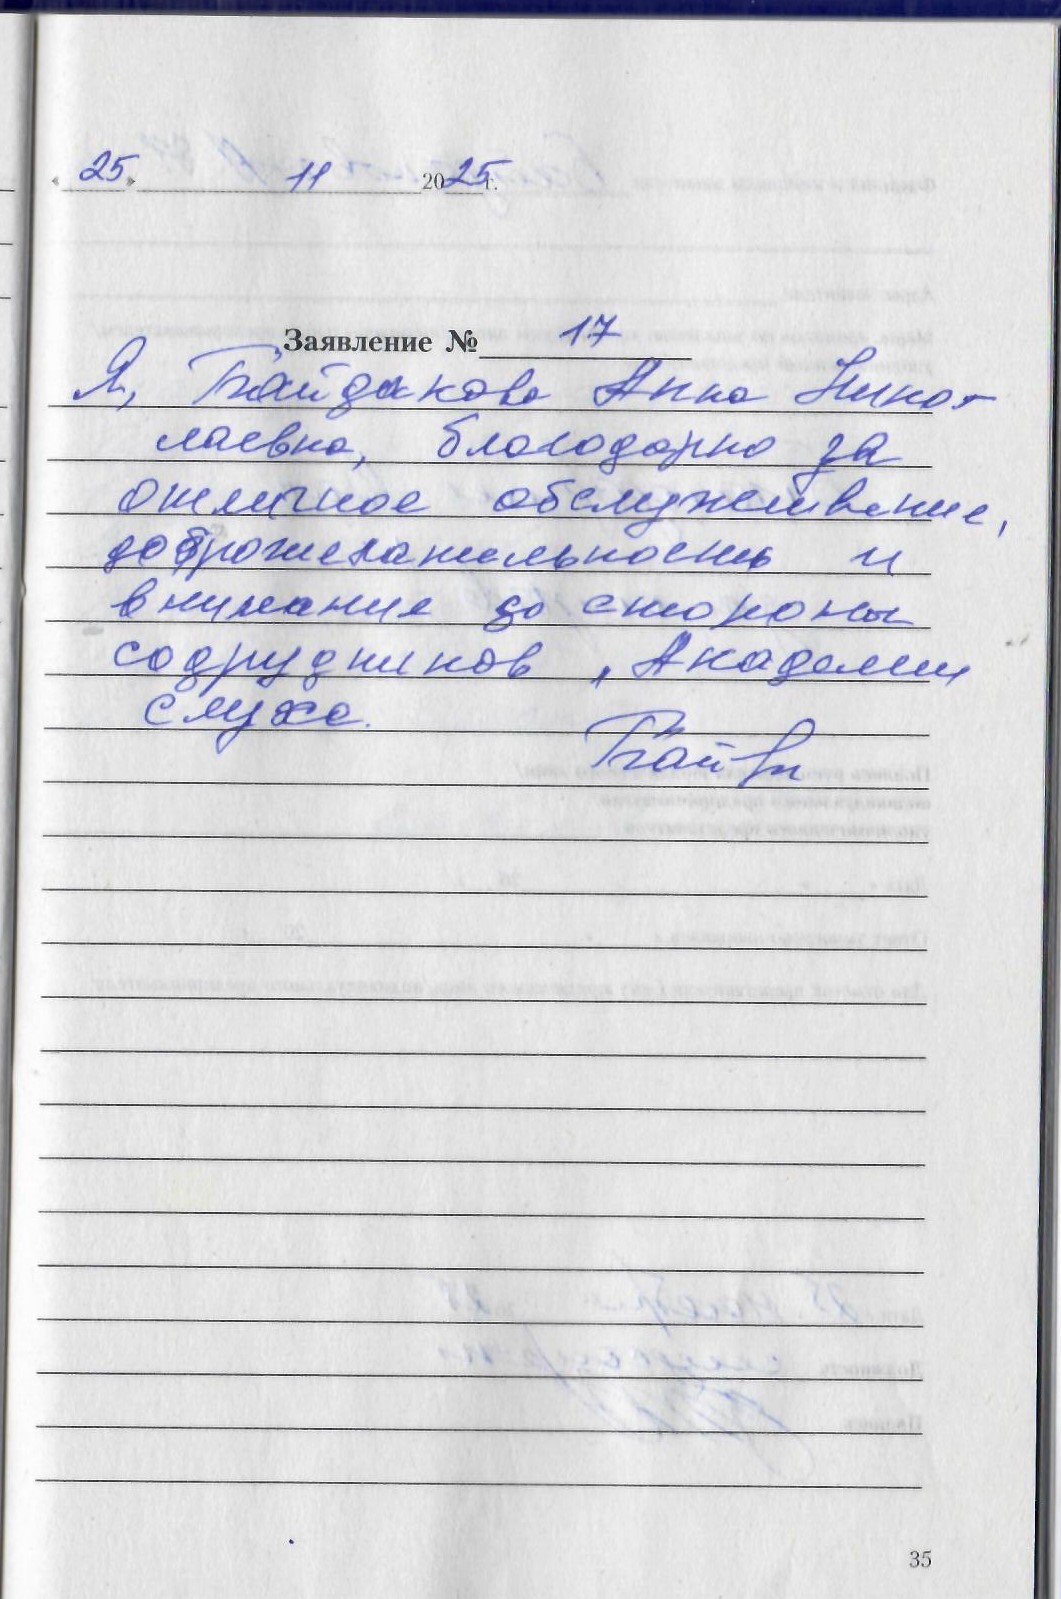 «25» 11 2025 г.
Заявление № 17
Я, Байдакова Анна Нико-
лаевна, благодарна за
отличное обслуживание,
доброжелательность и
внимание со стороны
содрудников „Академии
слуха.
35